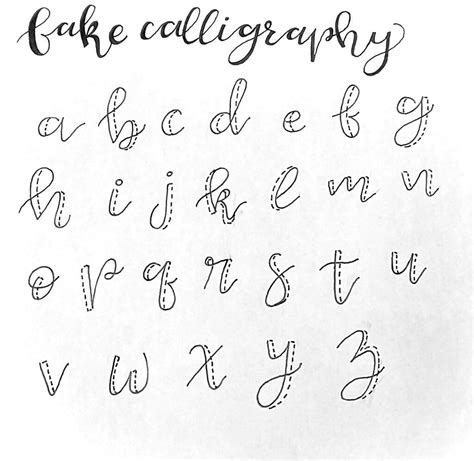 fake calligraphy
a b c d e f g
h i j k l m n
o p q r s t u
v w x y z